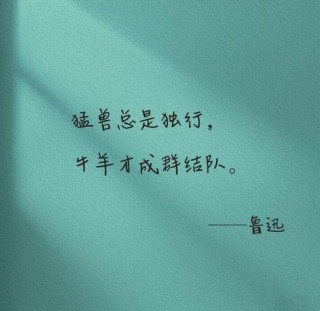 猛兽总是独行，
牛羊才成群结队。
——鲁迅